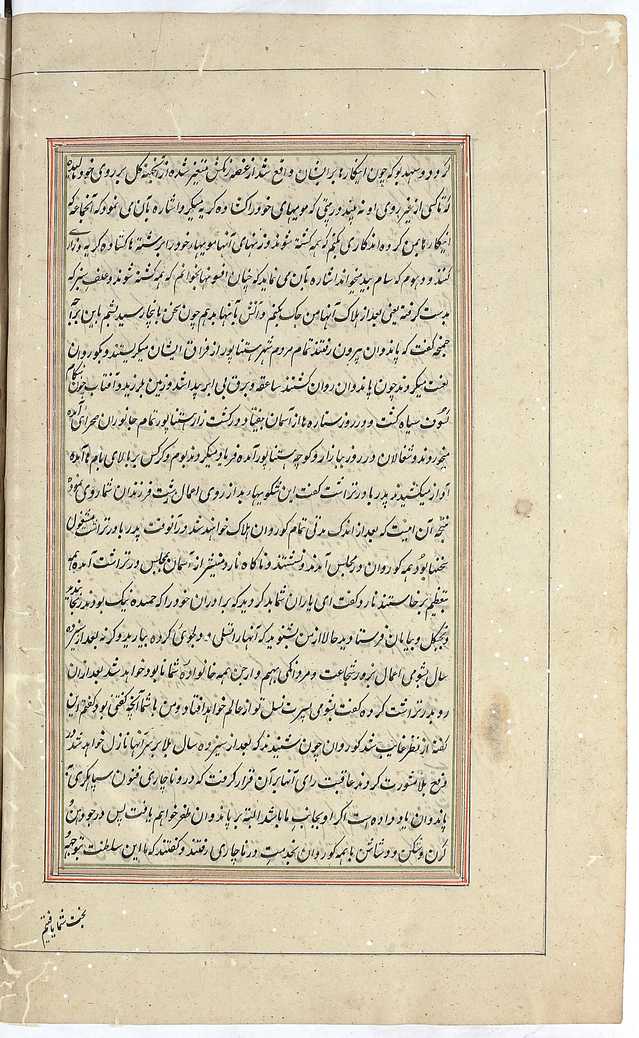 کرد و سهدیو که چون اینکارها بر ایشان واقع شد از غصه رنکش متغیر شده از انجهة کل بر روی خود مالیده
که تا کسی از تغیر روی او نه فهمد و رنی که مویهای خود را کشاده کریه میکرد اشاره بآن می نمود که آنجماعه که
اینکارها بمن کرده اند کاری بکنم که همه کشته شوند و زنهای آنها مویهای خود را بر کشته ها کشاده کریه و زاری
کنند و دهوم که سام بید میخواند اشاره بآن می نماید که چنان افسونها بخوانم که همه کشته شوند و علف سبز که
بدست کرفته یعنی بعد از هلاک آنها من خاک بکنم و آتش بآنها بدهم چون سخن باینجا رسید بشم باین راجه
جمیجه کفت که پاندوان بیرون رفتند تمام مردم شهر هستناپور از فراق ایشان میکریستند و بکوروان
لعنت میکردند چون پاندوان روان کشتند صاعقه و برق بی ابر پیدا شد و زمین بلرزید و آفتاب چون هنکام
کسوف سیاه کشت و در روز ستاره ها از آسمان بیفتاد و در کشت زار هستناپور تمام جانوران صحرای آمده
میخوردند و شغالان در روز ببازار و کوچه هستناپور آمده فریاد میکردند و بوم و کرکس بر بالای بام ها آمده
آواز میکشیدند پدر با دهرتراشت کفت این شکونهای بد از روی اعمال زشت فرزندان شما روی نموده
نتیجه آن اینست که بعد از اندک مدتی تمام کوروان هلاک خواهند شد در آنوقت پدر با دهرتراشت مشغول
سخنها بود همه کوروان در مجلس آمدند و نشستند و ناکاه نارد منیشر از آسمان بمجلس دهرتراشت آمده همه
بتعظیم برخاستند نارد کفت ای یاران شما بد کردید که برادران خود را که حمیده نیک بودند رنجانیدید
و بجنکل و بیابان فرستادید حالا از من بشنوید که آنها را تسلی و دلجوی کرده بیارید و کرنه بعد از سیزده
سال بشومی اعمال بزور شجاعت و مردانکی بهیم و ارجن همه خانواده شما نابود خواهد شد بعد از آن
رو بدهرتراشت کرده کفت بشومی پسرت نسل تو از عالم خواهد افتاد و من ها شما آنچه کفتنی بود کفتم این
کفته از نظر غایب شد کوروان چون شنیدند که بعد از سیزده سال بلا بر سر آنها نازل خواهد شد در
دفع بلا مشورت کردند عاقبت رای آنها بر آن قرار کرفت که درونا چارج فنون سپاهکری
پاندوان یاد داده است اکر او بجانب ما باشد البته بر پاندوان ظفر خواهیم یافت پس درجودهن و
کرن و شکن و دوشاسن با همه کوروان بخدمت درونا چارج رفتند و کفتند که ما این سلطنت بتوجه
بخت شما یافتیم